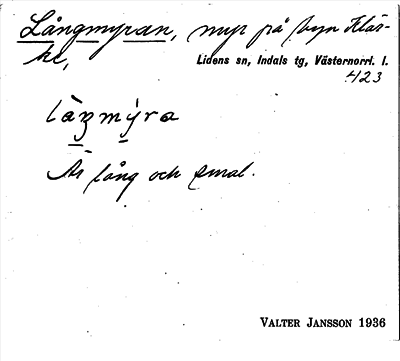 Långmyran, myr på byn Kläs-
ke,
Lidens sn, Indals tg, Västernorrl. l.
423
là̱ŋmý̱ra
Är lång och smal.
VALTER JANSSON 1936